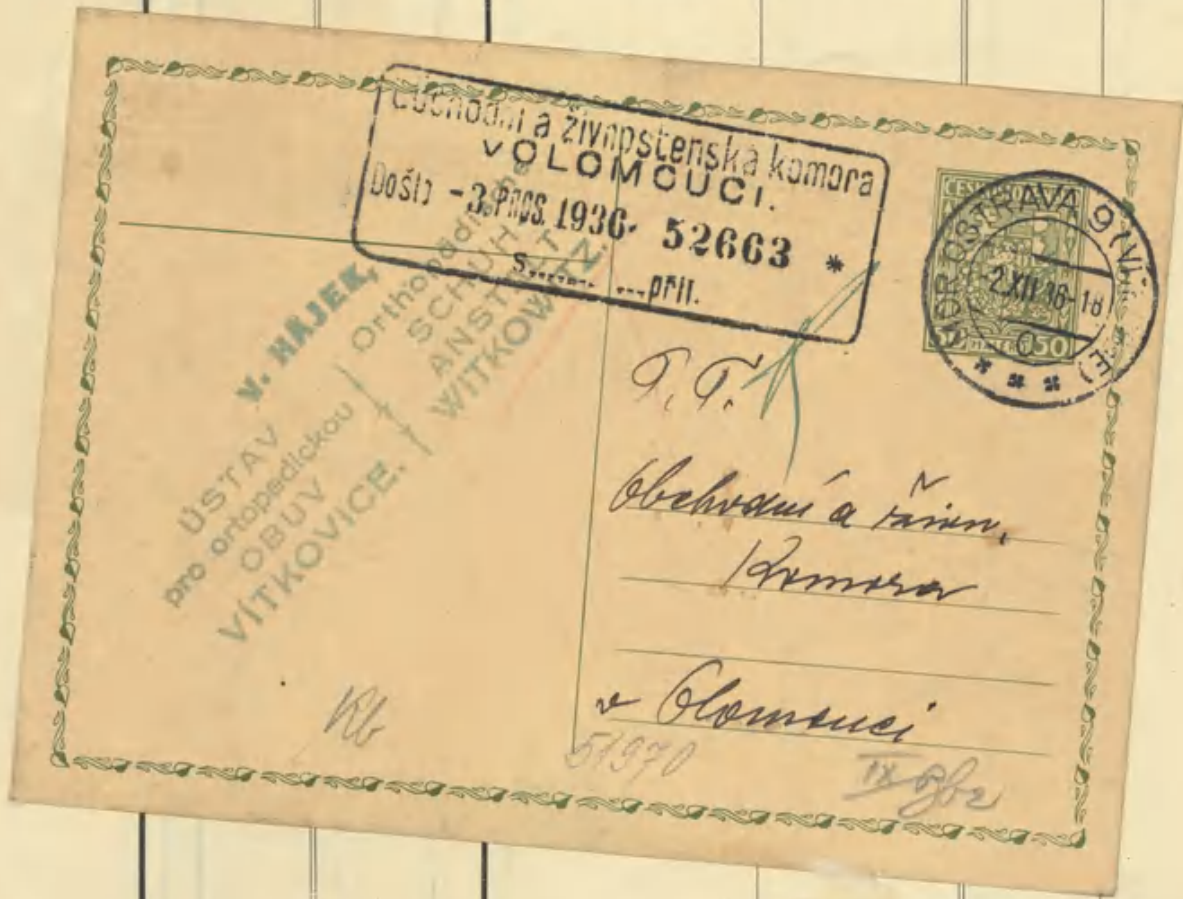 Obchodní a živnostenská komora
v OLOMOUCI.
Došlo -3. PROS. 1936 52663 *
s........ ....příl.
MOR. OSTRAVA 9 (VÍTKOVICE)
-2.XII.36-18
50 50
V. HÁJEK,
ÚSTAV
pro ortopedickou
OBUV
VÍTKOVICE.
Orthopädische
SCHUH
ANSTALT
WITKOWITZ.
T. T.
Obchodní a živn.
Komora
v Olomouci
51970